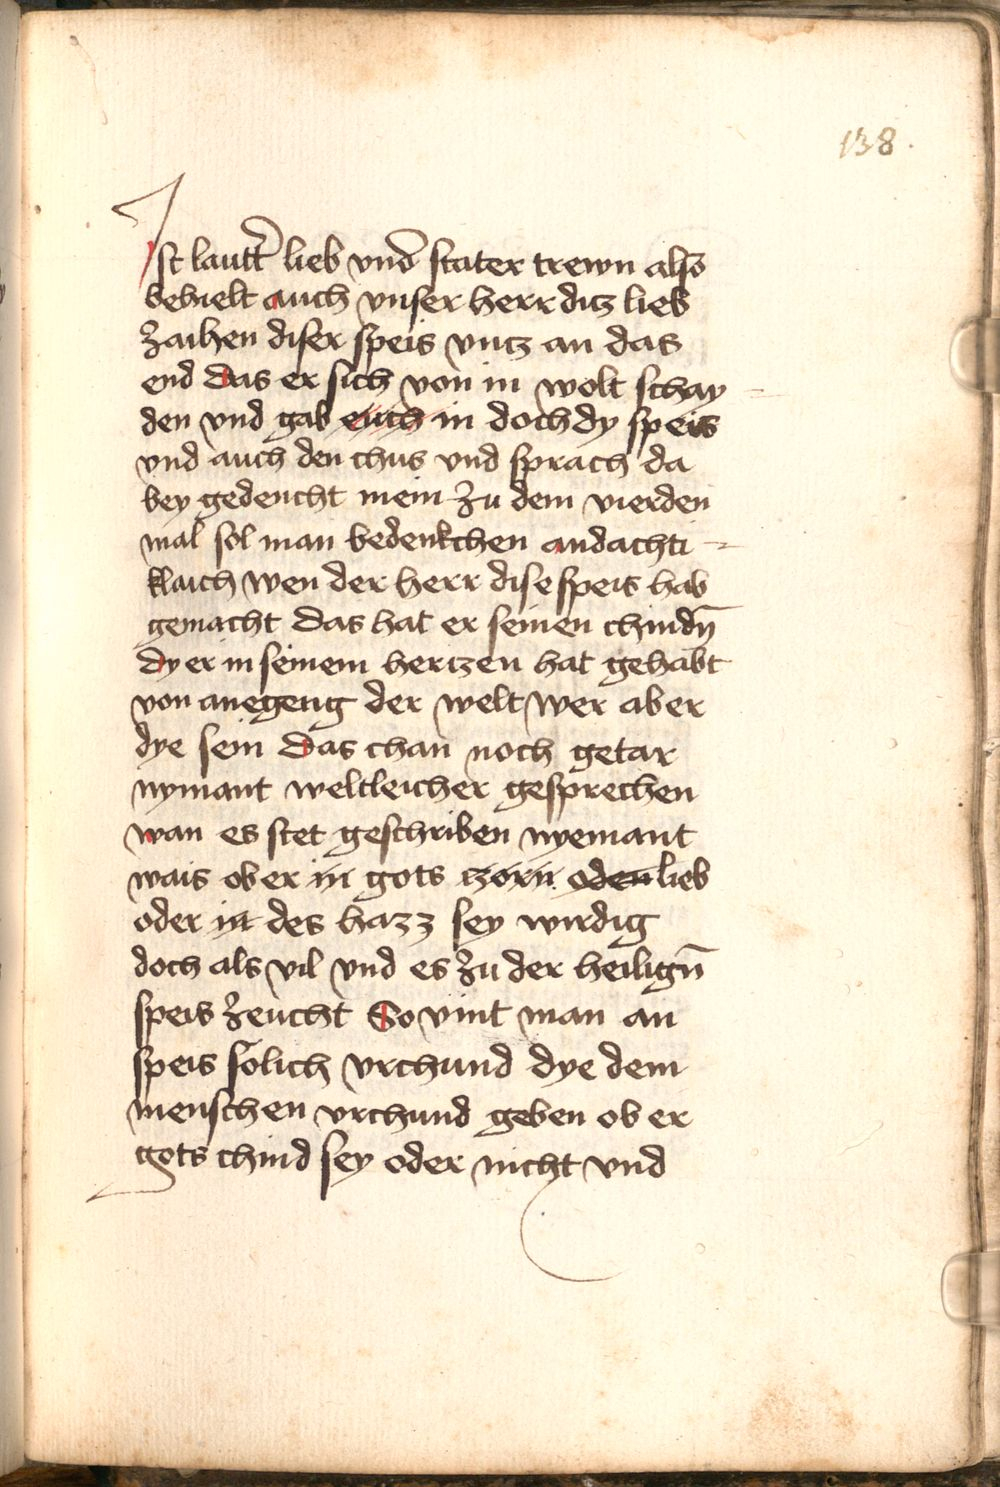 138.
Ist lautt̄ lieb vnd̄ stater trewn also
behielt auch vnser herr ditz lieb
zaihen diser speis vntz an das
end das er sich von in wolt schay
den vnd gab euch in doch dy speis
vnd auch den chus vnd sprach da
bey gedencht mein zu dem vierden
mal sol man bedenkchen andachti
klaich wen der herr dise speis hab
gemacht das hat er seinen chindn̄
dy er in seinem hertzen hat gehabt
von anegeng der welt wer aber
dye sein das chan noch getar
nymant weltleicher gesprechen
wan es stet geschriben nyemant
wais ob er in gots czorn oden lieb
oder in des hazz sey wirdig
doch als vil vnd es zu der heilign̄
speis zeucht So vint man an
speis solich vrchund dye dem
menschen vrchund geben ob er
gots chind sey oder nicht vnd